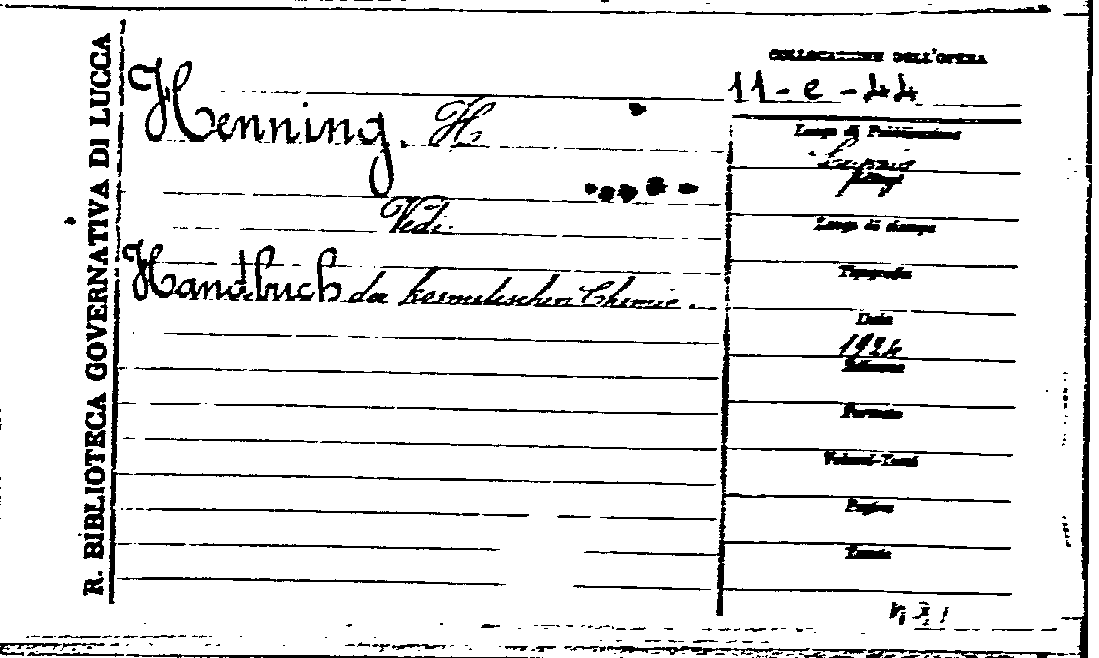 R. BIBLIOTECA GOVERNATIVA DI LUCCA
Henning. H
Vedi.
Handbuch der kosmetischen Chemie.
COLLOCAZIONE DELL'OPERA
11-e-44
Luogo di Pubblicazione
Luogo di stampa
Tipografia
Data
1924
Edizione
Formato
Volumi-Tomi
Pagine